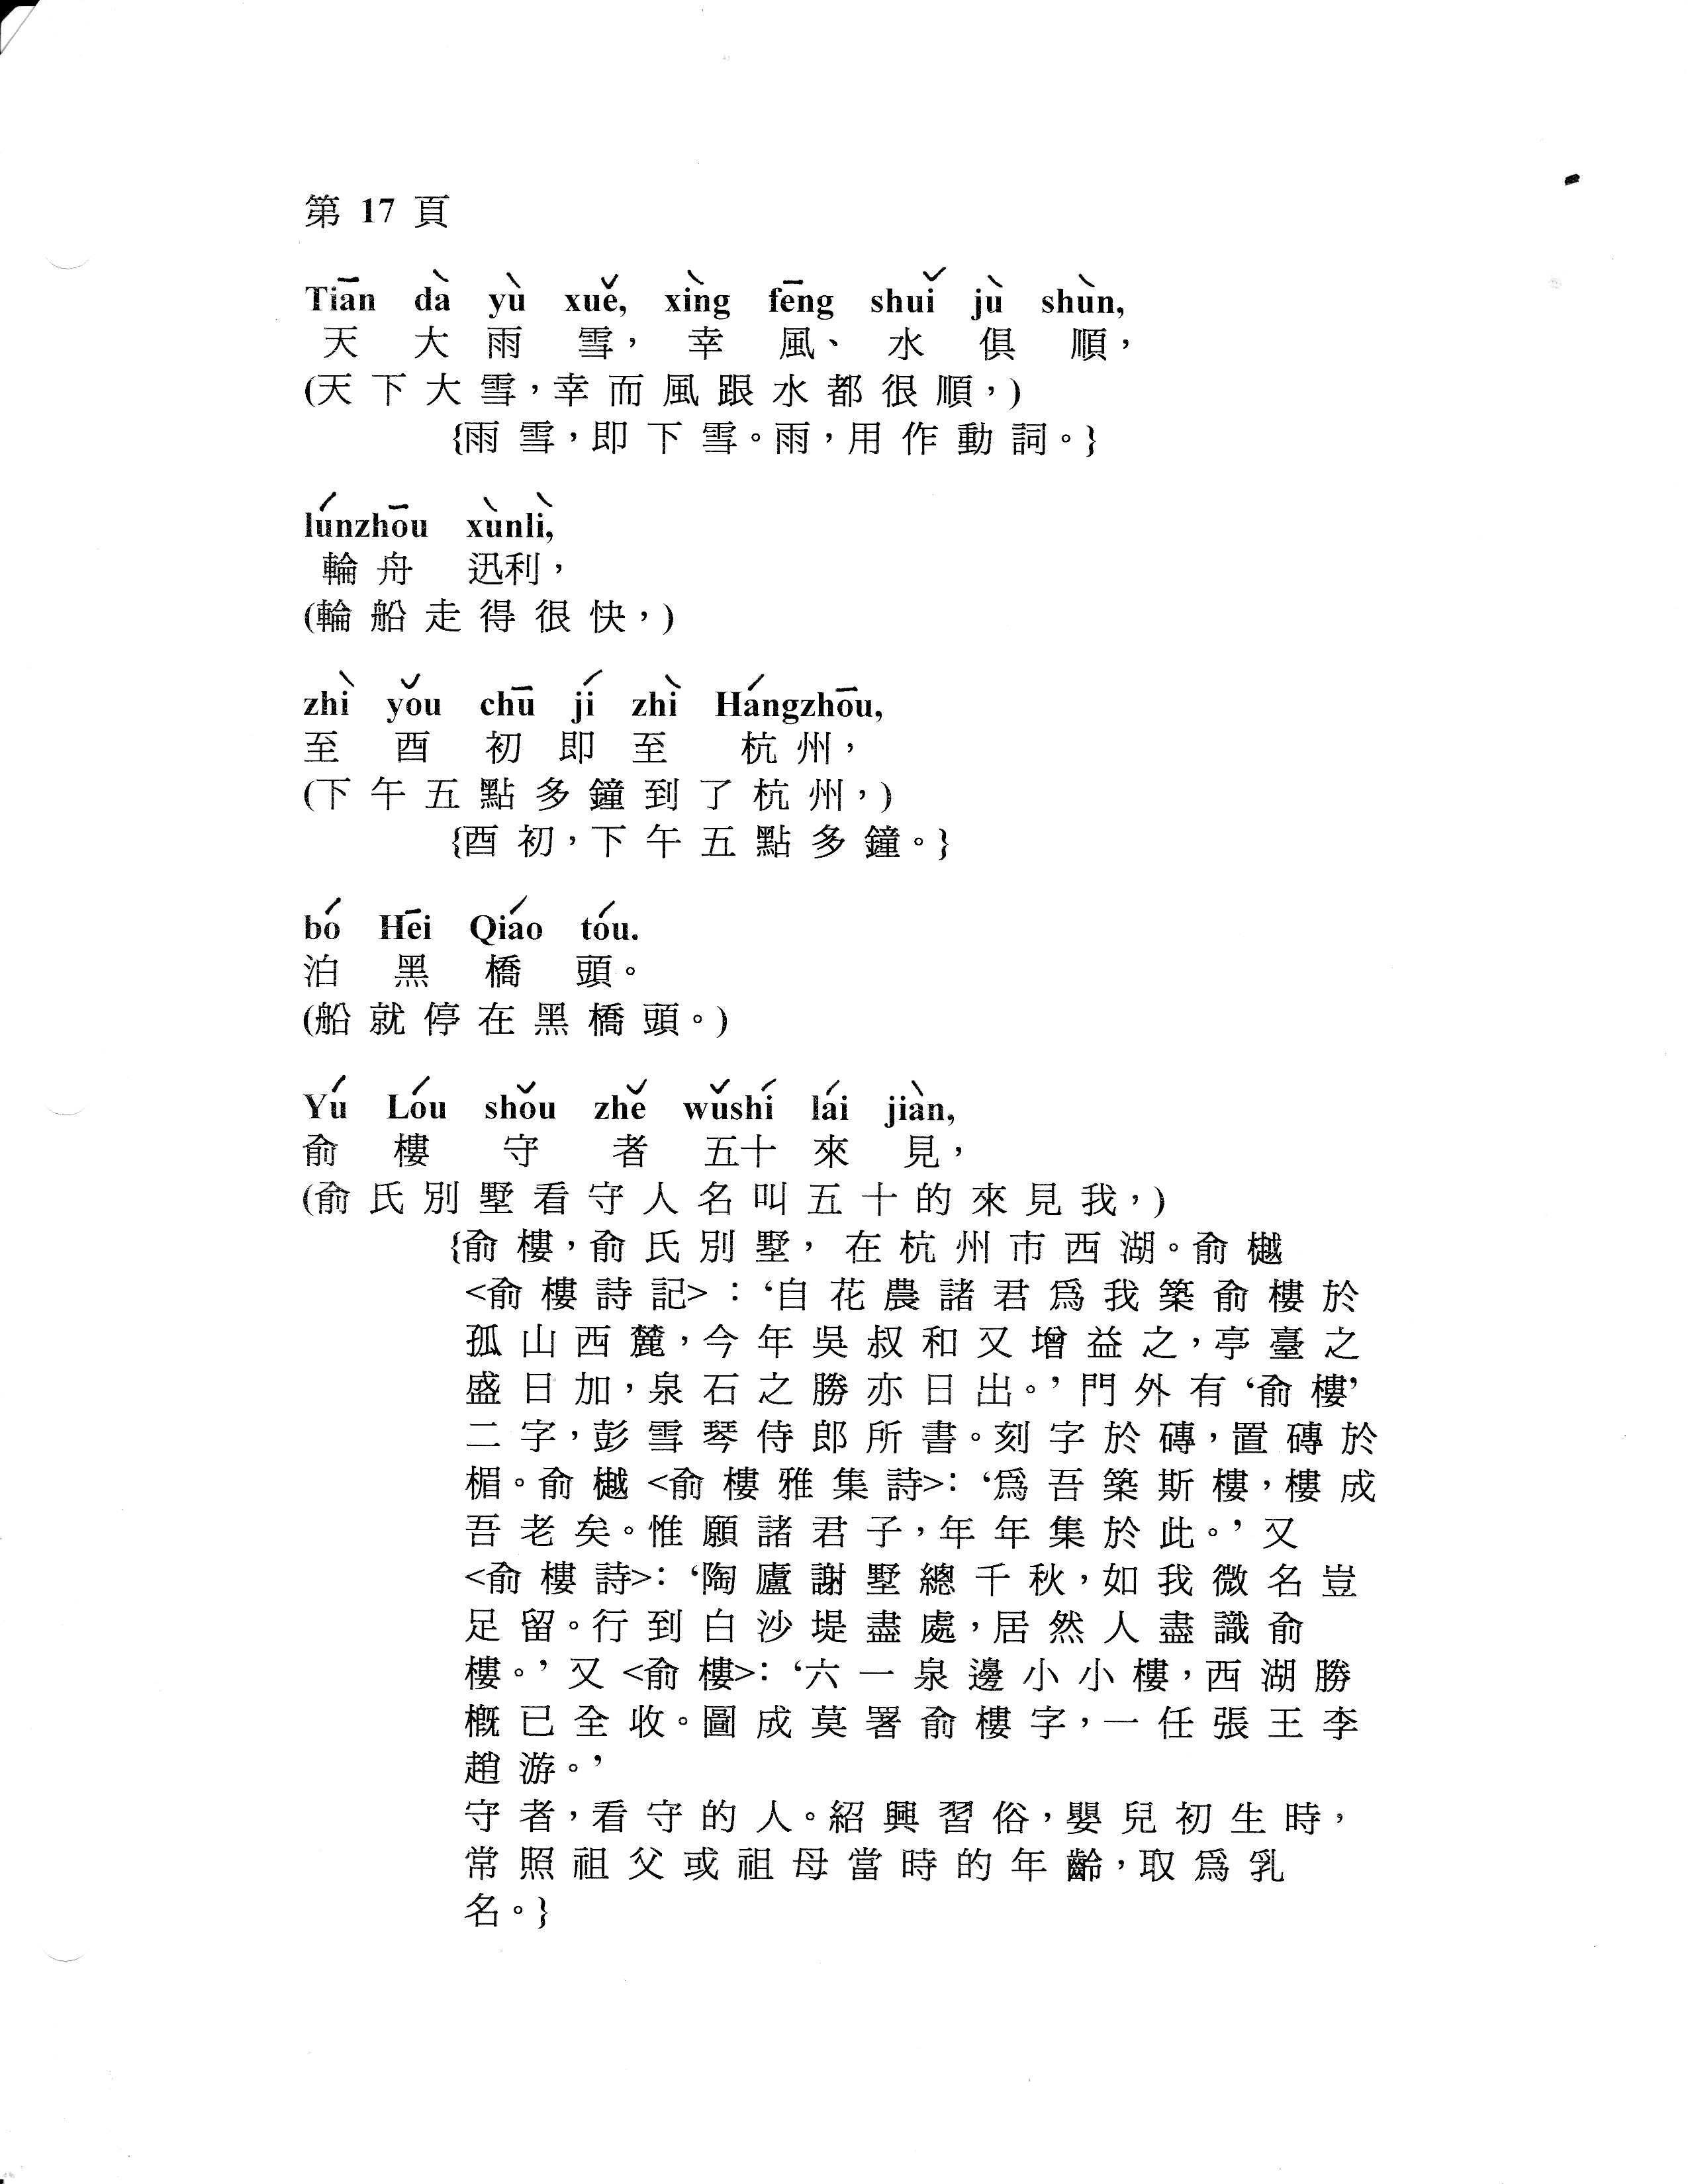 第 17 頁
Tiān dà yù xuě, xìng fēng shuǐ jù shùn,
天 大 雨 雪，幸 風、水 俱 順，
(天 下 大 雪，幸 而 風 跟 水 都 很 順，)
{雨 雪，即 下 雪。雨，用 作 動 詞。}
lúnzhōu xùnlì,
輪 舟 迅利，
(輪 船 走 得 很 快，)
zhì yǒu chū jí zhì Hángzhōu,
至 酉 初 即 至 杭 州，
(下 午 五 點 多 鐘 到 了 杭 州，)
{酉 初，下 午 五 點 多 鐘。}
bó Hēi Qiáo tóu.
泊 黑 橋 頭。
(船 就 停 在 黑 橋 頭。)
Yú Lóu shǒu zhě wǔshí lái jiàn,
俞 樓 守 者 五十 來 見，
(俞 氏 別 墅 看 守 人 名 叫 五 十 的 來 見 我，)
{俞 樓，俞 氏 別 墅， 在 杭 州 市 西 湖。俞 樾
<俞 樓 詩 記>：‘自 花 農 諸 君 爲 我 築 俞 樓 於
孤 山 西 麓，今 年 吳 叔 和 又 增 益 之，亭 臺 之
盛 日 加，泉 石 之 勝 亦 日 出。’ 門 外 有 ‘俞 樓’
二 字，彭 雪 琴 侍 郎 所 書。刻 字 於 磚，置 磚 於
楣。俞 樾 <俞 樓 雅 集 詩>：‘爲 吾 築 斯 樓，樓 成
吾 老 矣。惟 願 諸 君 子，年 年 集 於 此。’ 又
<俞 樓 詩>：‘陶 廬 謝 墅 總 千 秋，如 我 微 名 豈
足 留。行 到 白 沙 堤 盡 處，居 然 人 盡 識 俞
樓。’ 又 <俞 樓>：‘六 一 泉 邊 小 小 樓，西 湖 勝
概 已 全 收。圖 成 莫 署 俞 樓 字，一 任 張 王 李
趙 游。’
守 者，看 守 的 人。紹 興 習 俗，嬰 兒 初 生 時，
常 照 祖 父 或 祖 母 當 時 的 年 齡，取 爲 乳
名。}